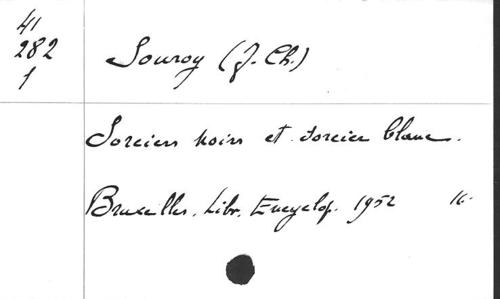 41
282
1
Souroy (J. Ch.)
Sorciers noirs et sorcier blanc.
Bruxelles, Libr. Encyclop. 1952 16.